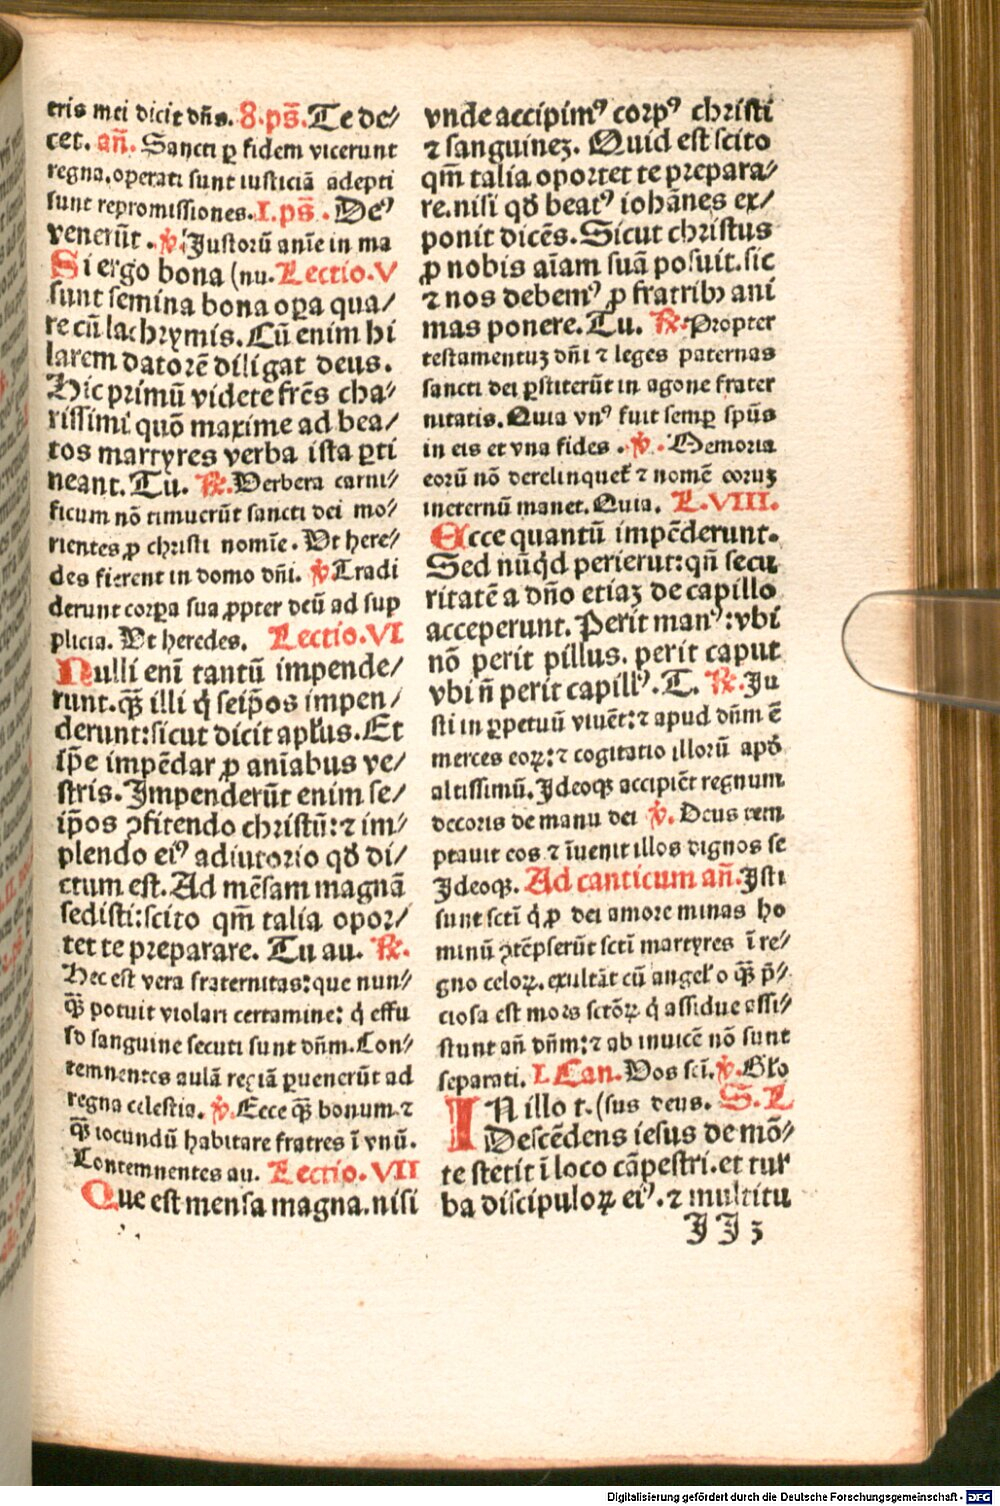 tris mei dicit dñs. 8.ps̄. Te de⸗
cet. añ. Sancti ꝑ fidem vicerunt
regna. operati sunt iusticiā adepti
sunt repromissiones. I.ps̄. Deꝰ
venerūt. ℣. Justorū anīe in ma
Si ergo bona (nu. Lectio. V
sunt semina bona oꝑa qua⸗
re cū lachrymis. Cū enim hi
larem datorē diligat deus.
Hic primū videte frēs cha⸗
rissimi quō maxime ad bea⸗
tos martyres verba ista ꝑti
neant. Tu. ℟. Verbera carni⸗
ficum nō timuerūt sancti dei mo⸗
rientes ꝓ christi nomīe. Vt here⸗
des fierent in domo dñi. ℣ Tradi
derunt corpꝛa sua ꝓpter deū ad sup
plicia. Vt heredes. Lectio. VI
Nulli enī tantū impende⸗
runt. qꝫ̄ illi q̇ seip̄os impen⸗
derunt: sicut dicit aplus. Et
ip̄e impēdar ꝓ anīabus ve⸗
stris. Impenderūt enim se⸗
ip̄os ꝯfitendo christū: ⁊ im⸗
plendo eiꝰ adiutorio qđ di⸗
ctum est. Ad mēsam magnā
sedisti: scito qm̄ talia opor⸗
tet te preparare. Tu au. ℟.
Hec est vera fraternitas: que nun⸗
qꝫ̄ potuit violari certamine: q̇ effu
so sanguine secuti sunt dñm. Con⸗
temnentes aulā regiā ꝑuenerūt ad
regna celestia. ℣. Ecce qꝫ̄ bonum ⁊
qꝫ̄ iocundū habitare fratres ī vnū.
Contemnentes au. Lectio. VII
Que est mensa magna. nisi
vnde accipimꝰ corpꝰ christi
⁊ sanguinez. Quid est scito
qm̄ talia oportet te prepara⸗
re. nisi qđ beatꝰ iohānes ex⸗
ponit dicēs. Sicut christus
ꝓ nobis aīam suā posuit. sic
⁊ nos debemꝰ ꝓ fratribꝫ ani
mas ponere. Tu. ℟. Propter
testamentuz dñi ⁊ leges paternas
sancti dei ꝑstiterūt in agone frater
nitatis. Quia vnꝰ fuit semꝑ spūs
in eis et vna fides. ℣. Memoria
eorū nō derelinquet̄ ⁊ nomē eoruz
ineternū manet. Quia. L. VIII.
Ecce quantū impēderunt.
Sed nūqd perierut: qñ secu
ritatē a dño etiaz de capillo
acceperunt. Perit manꝰ: vbi
nō perit pillus. perit caput
vbi ñ perit capillꝰ. T. ℟. Ju
sti in ꝑpetuū viuēt: ⁊ apud dñm ē
merces eoꝝ: ⁊ cogitatio illorū apđ
altissimū. Ideoqꝫ accipiēt regnum
decoris de manu dei ℣. Deus tem
ptauit eos ⁊ īuenit illos dignos se
Ideoqꝫ. Ad canticum añ. Isti
sunt sctī q̇ ꝓ dei amore minas ho
minū ꝯtēpserūt sctī martyres ī re⸗
gno celoꝝ. exultāt cū angel̄ o qꝫ̄ p̄⸗
ciosa est mors sctōꝝ q̇ assidue assi⸗
stunt añ dñm: ⁊ ab inuicē nō sunt
separati. I. Can. Vos sci. ℣. Glo
IN illo t. (sus deus. S. L
Descēdens iesus de mō⸗
te stetit ī loco cāpestri. et tur
ba discipuloꝝ eiꝰ. ⁊ multitu
JJ 3
Digitalisierung gefördert durch die Deutsche Forschungsgemeinschaft - DFG